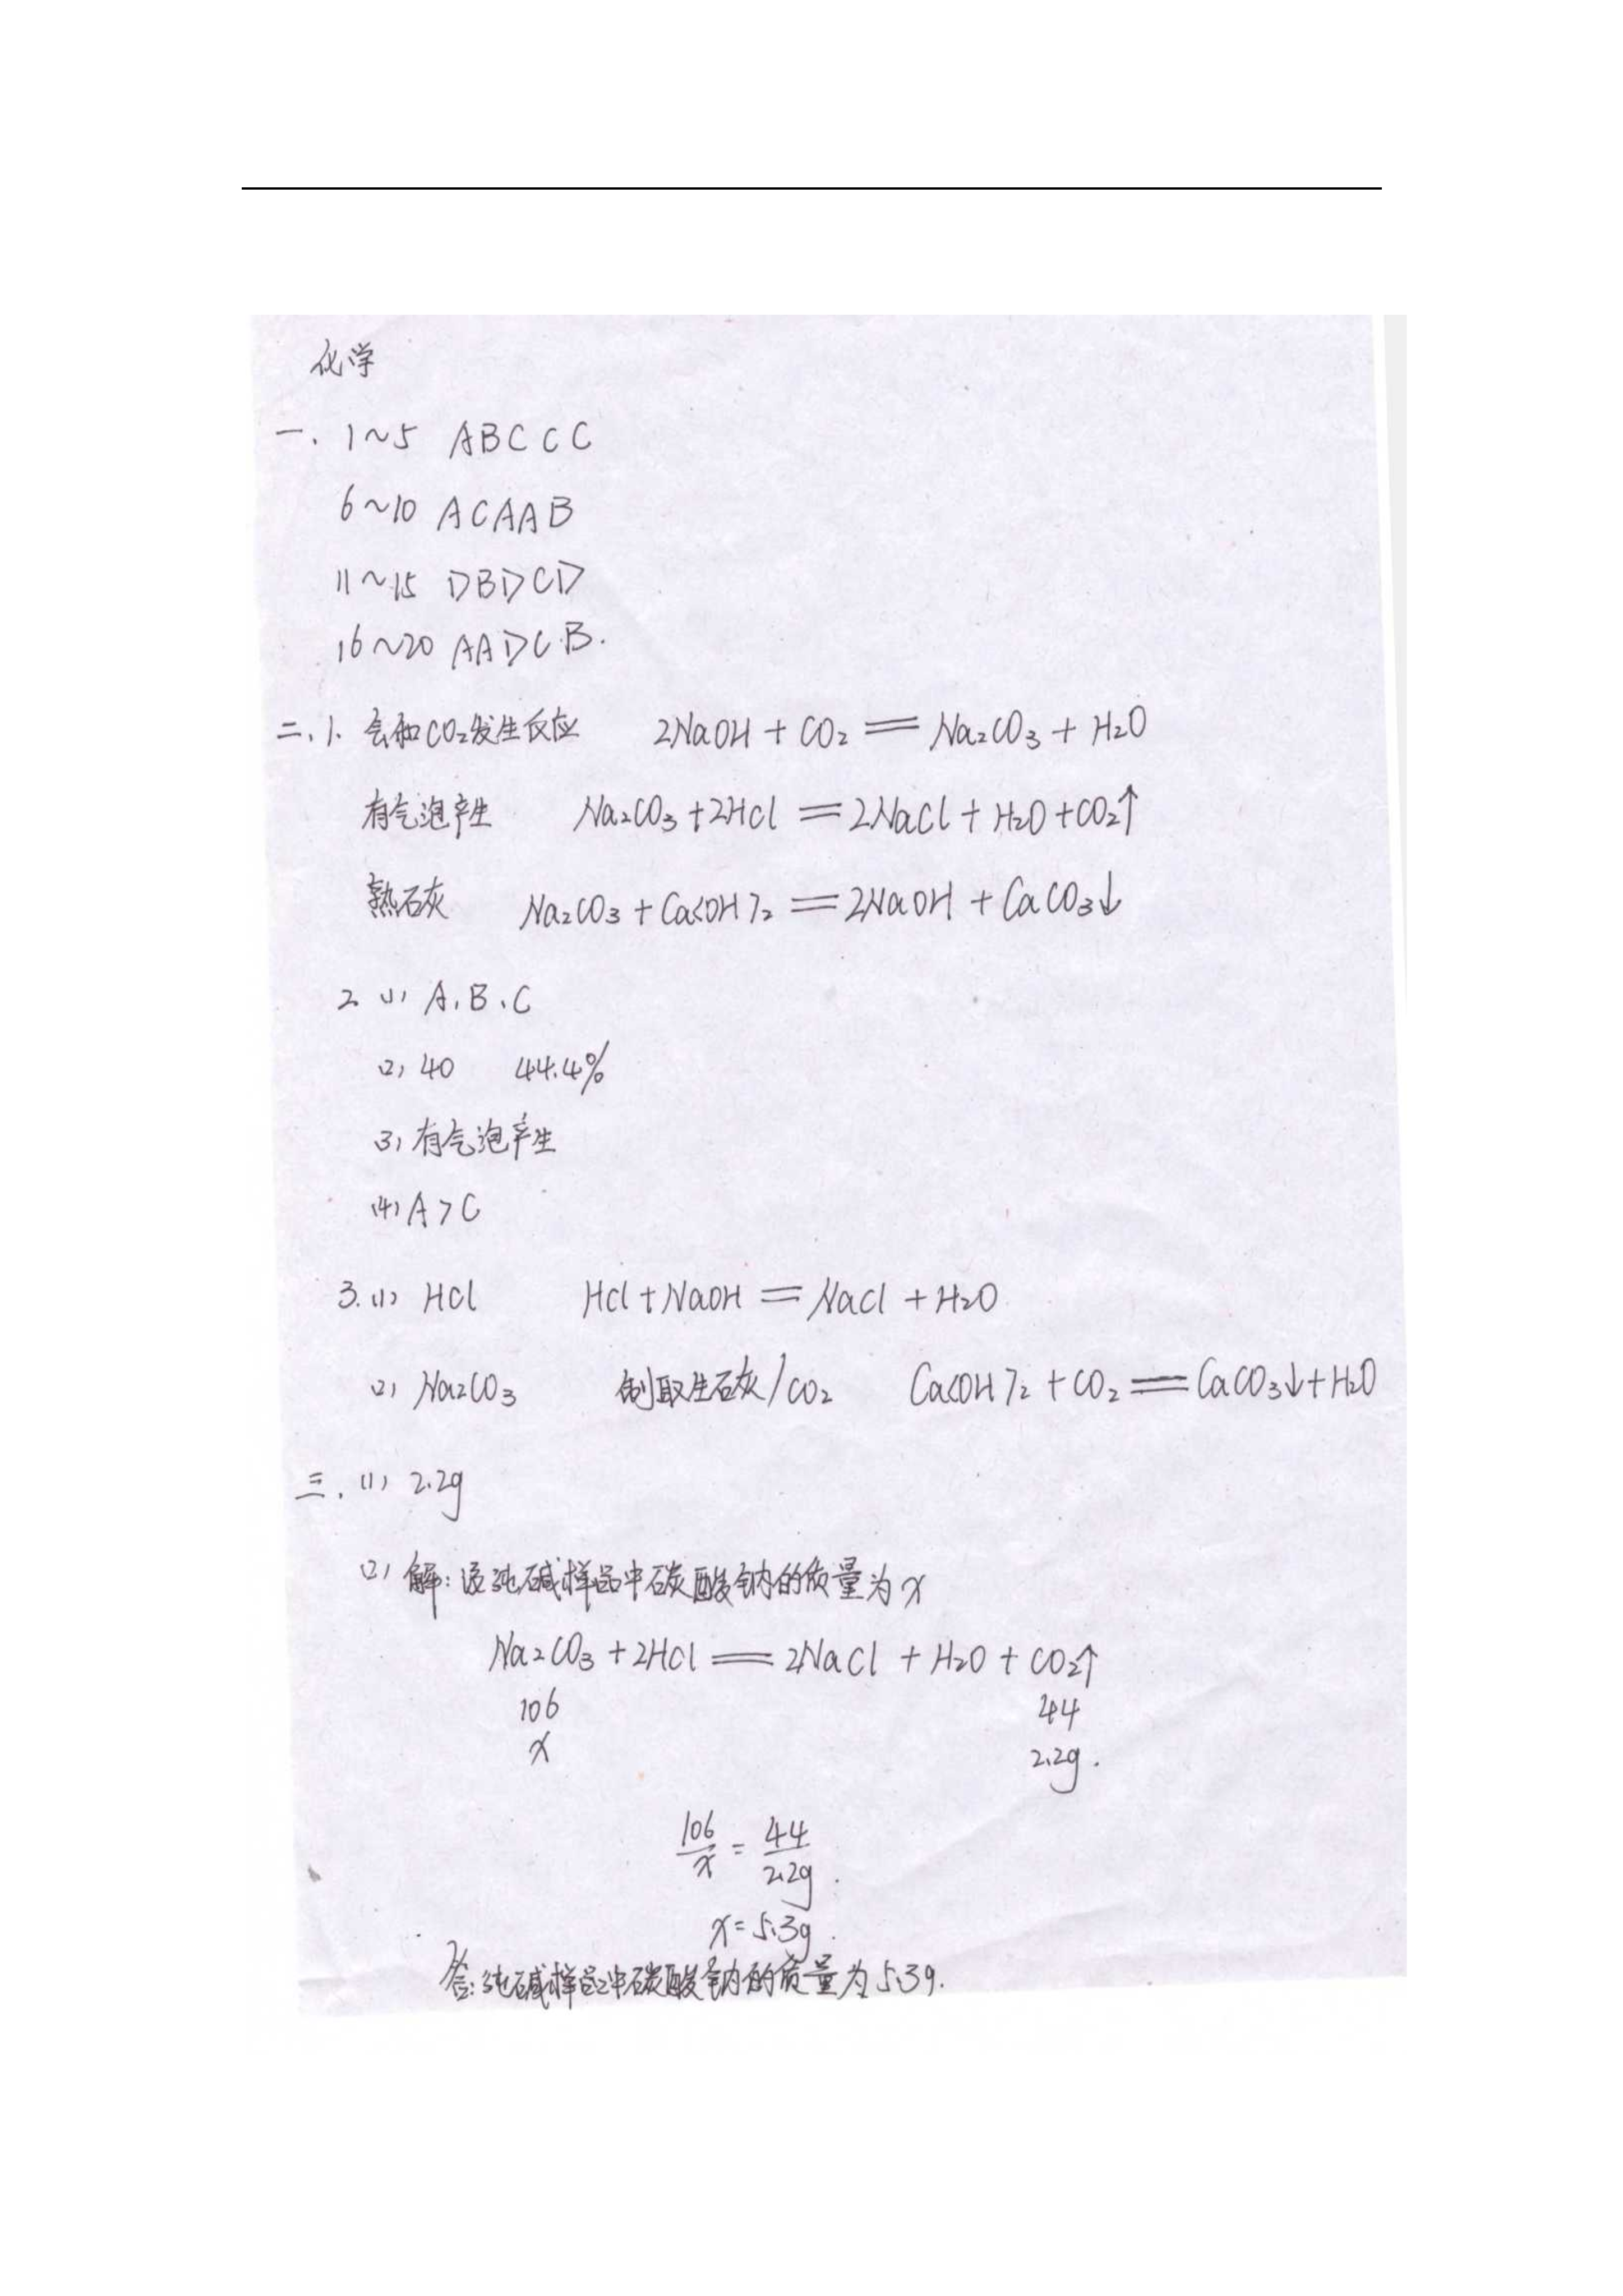 化学
一、1~5 ABCCC
6~10 ACAAB
11~15 DBDCD
16~20 AADCB.
二、1. 会和CO₂发生反应 2NaOH + CO₂ == Na₂CO₃ + H₂O
有气泡产生 Na₂CO₃ + 2HCl == 2NaCl + H₂O + CO₂↑
熟石灰 Na₂CO₃ + Ca(OH)₂ == 2NaOH + CaCO₃↓
2. (1) A、B、C
(2) 40 44.4%
(3) 有气泡产生
(4) A > C
3. (1) HCl HCl + NaOH == NaCl + H₂O
(2) Na₂CO₃ 制取生石灰/CO₂ Ca(OH)₂ + CO₂ == CaCO₃↓ + H₂O
三、(1) 2.2g
(2) 解：设纯碱样品中碳酸钠的质量为x
Na₂CO₃ + 2HCl == 2NaCl + H₂O + CO₂↑
106 44
x 2.2g.
106/x = 44/2.2g.
x = 5.3g.
答：纯碱样品中碳酸钠的质量为5.3g.